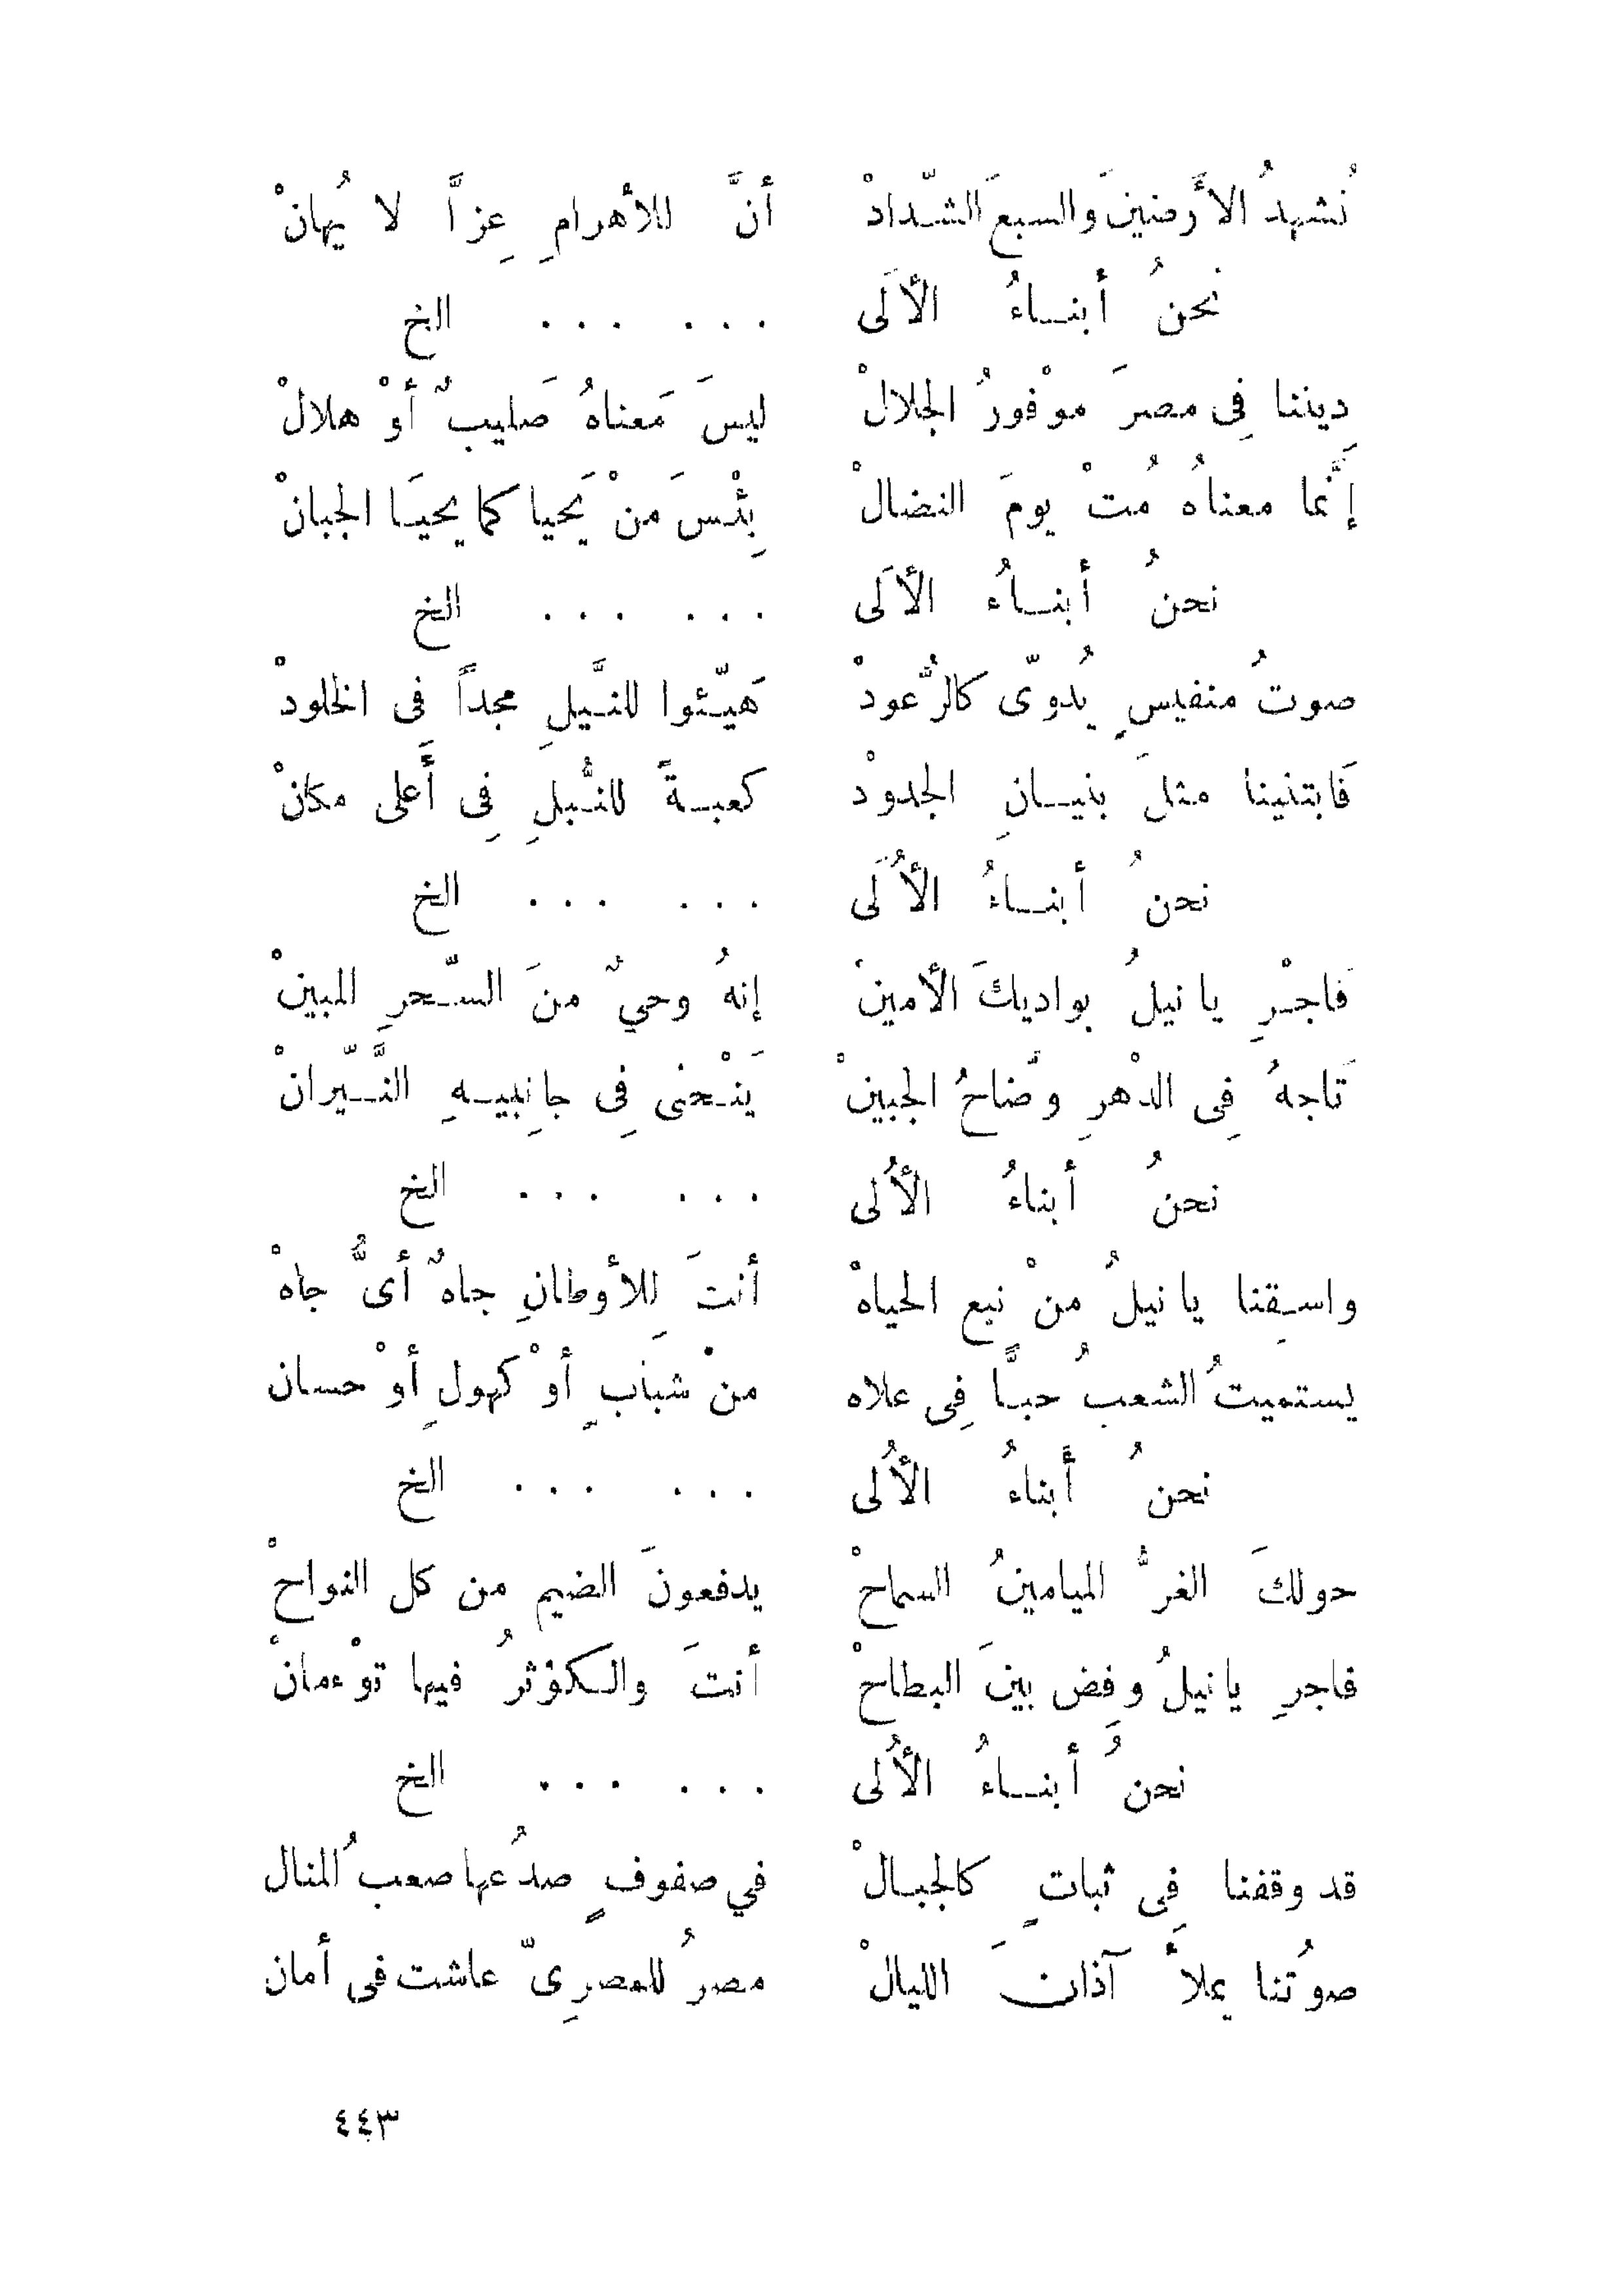 نُشهدُ الأرضينَ والسبعَ الشّدادْ أنَّ للأهرامِ عِزاًّ لا يُهانْ
نحنُ أبنــاءُ الألَى ... ... الخ
دِيننا فِى مصرَ موْفورُ الجلالْ ليسَ مَعناهُ صَليبٌ أوْ هلالْ
إنَّما معناهُ مُتْ يومَ النضالْ بِئْسَ منْ يَحيا كما يحيَا الجبانْ
نحنُ أبنــاءُ الألَى ... ... الخ
صوتُ منفيسٍ يُدوّى كالرُّعودْ هَيّئوا للنّيلِ مجداً فى الخلودْ
فَابتنينا مثلَ بنيــانِ الجدودْ كعبــةً للنُّبلِ فِى أَعلى مكانْ
نحنُ أبنــاءُ الأُلَى ... ... الخ
فَاجْرِ يا نيلُ بواديكَ الأمينْ إنهُ وحيٌ منَ السّـحرِ المبينْ
تَاجهُ فِى الدْهرِ وضّاحُ الجبينْ يَنْـحنى فِى جانِبيـهِ النَّـيّرانْ
نحنُ أبناءُ الأُلى ... ... الخ
واسـقِنا يا نيلُ منْ نبع الحياهْ أنتَ لِلأوطانِ جاهٌ أىُّ جاهْ
يستميتُ الشعبُ حبًّا فِى علاه منْ شبابٍ أوْ كهولٍ أوْ حسان
نحنُ أَبناءُ الأُلى ... ... الخ
حولكَ الغرُّ الميامينُ السماحْ يدفعونَ الضيم من كل النواحْ
فاجرِ يا نيلُ وفض بينَ البطاحْ أنتَ والـكوْثرُ فيها توْءمانْ
نحنُ أبنــاءُ الأُلى ... ... الخ
قد وقفنا فِى ثباتٍ كالجبـالْ في صفوفٍ صدعُها صعبُ المنال
صوتُنا يملأُ آذانَ الليالْ مصرُ للمصرِىّ عاشت فى أمان
٤٤٣